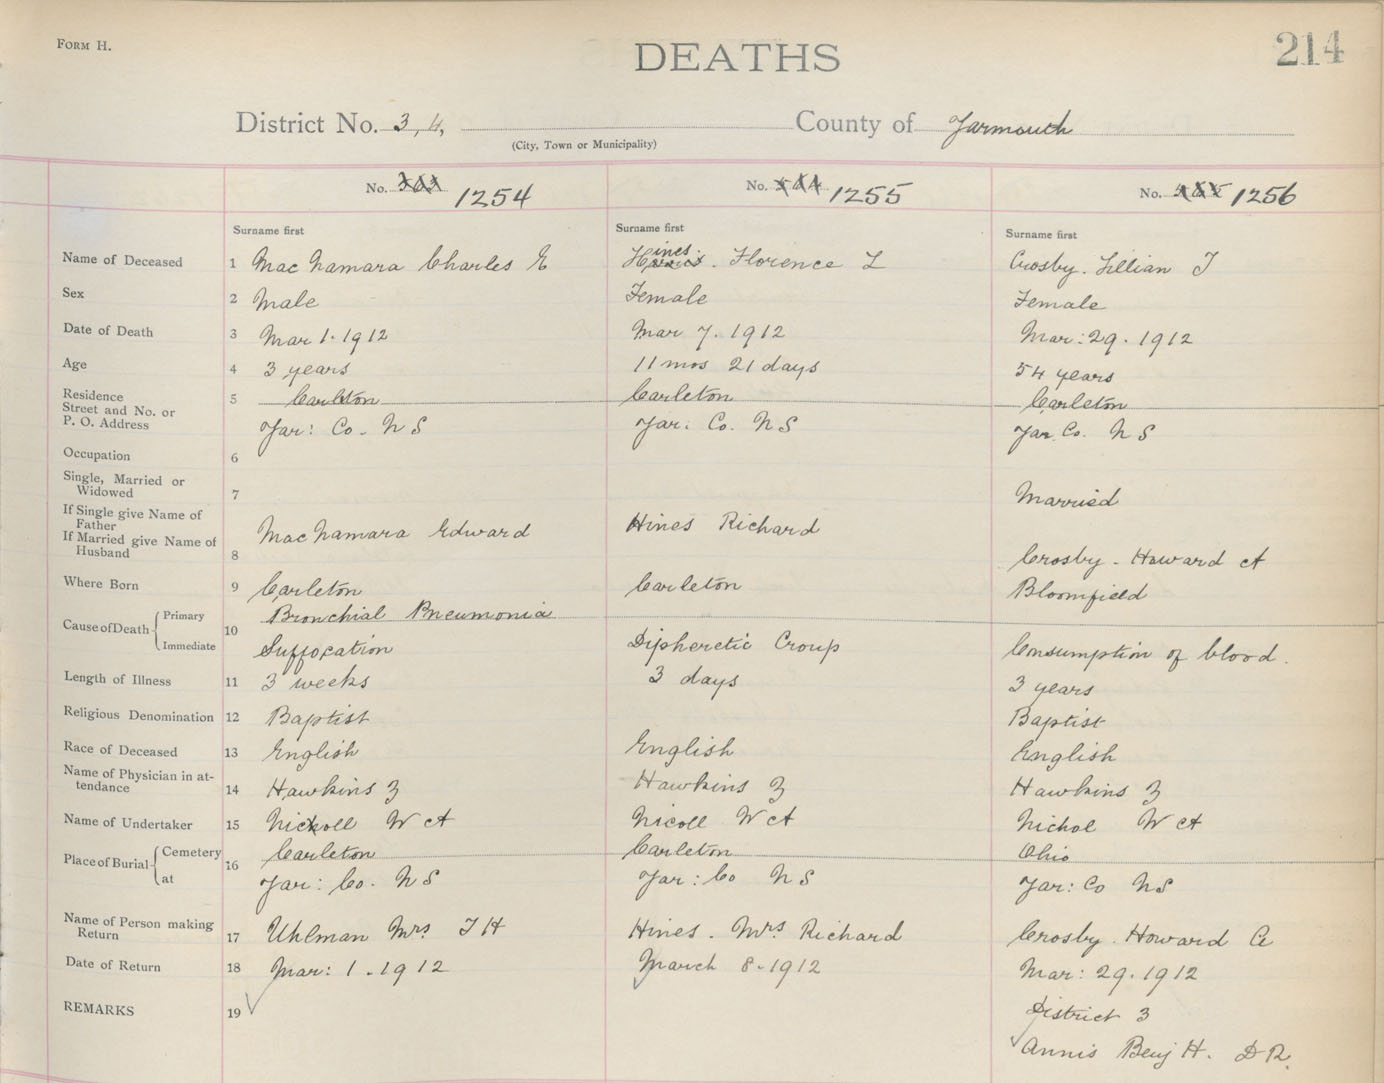 FORM H.
DEATHS
214
District No. 3, 4,
County of Yarmouth
(City, Town or Municipality)
No. 1254
No. 1255
No. 1256
Surname first
Surname first
Surname first
Name of Deceased 1 MacNamara Charles E
Hines. Florence L
Crosby. Lillian T
Sex 2 Male
Female
Female
Date of Death 3 Mar 1. 1912
Mar 7. 1912
Mar: 29. 1912
Age 4 3 years
11 mos 21 days
54 years
Residence
Street and No. or
P. O. Address
5 Carleton
Yar: Co. N S
Carleton
Yar: Co. N S
Carleton
Yar Co. N S
Occupation 6
Single, Married or
Widowed 7
Married
If Single give Name of
Father
If Married give Name of
Husband 8
MacNamara Edward
Hines Richard
Crosby. Howard A
Where Born 9 Carleton
Carleton
Bloomfield
Cause of Death Primary
Immediate
10
Bronchial Pneumonia
Suffocation
Dipheretic Croup
Consumption of blood.
Length of Illness 11 3 weeks
3 days
3 years
Religious Denomination 12 Baptist
Baptist
Race of Deceased 13 English
English
English
Name of Physician in at-
tendance 14 Hawkins Z
Hawkins Z
Hawkins Z
Name of Undertaker 15 Nickoll W A
Nicoll W A
Nichol W A
Place of Burial Cemetery
at
16
Carleton
Yar: Co. N S
Carleton
Yar: Co N S
Ohio
Yar: Co N S
Name of Person making
Return 17 Uhlman Mrs T H
Hines. Mrs Richard
Crosby. Howard A
Date of Return 18 Mar: 1. 1912
March 8. 1912
Mar: 29. 1912
REMARKS 19
District 3
Annis Benj H. D R.